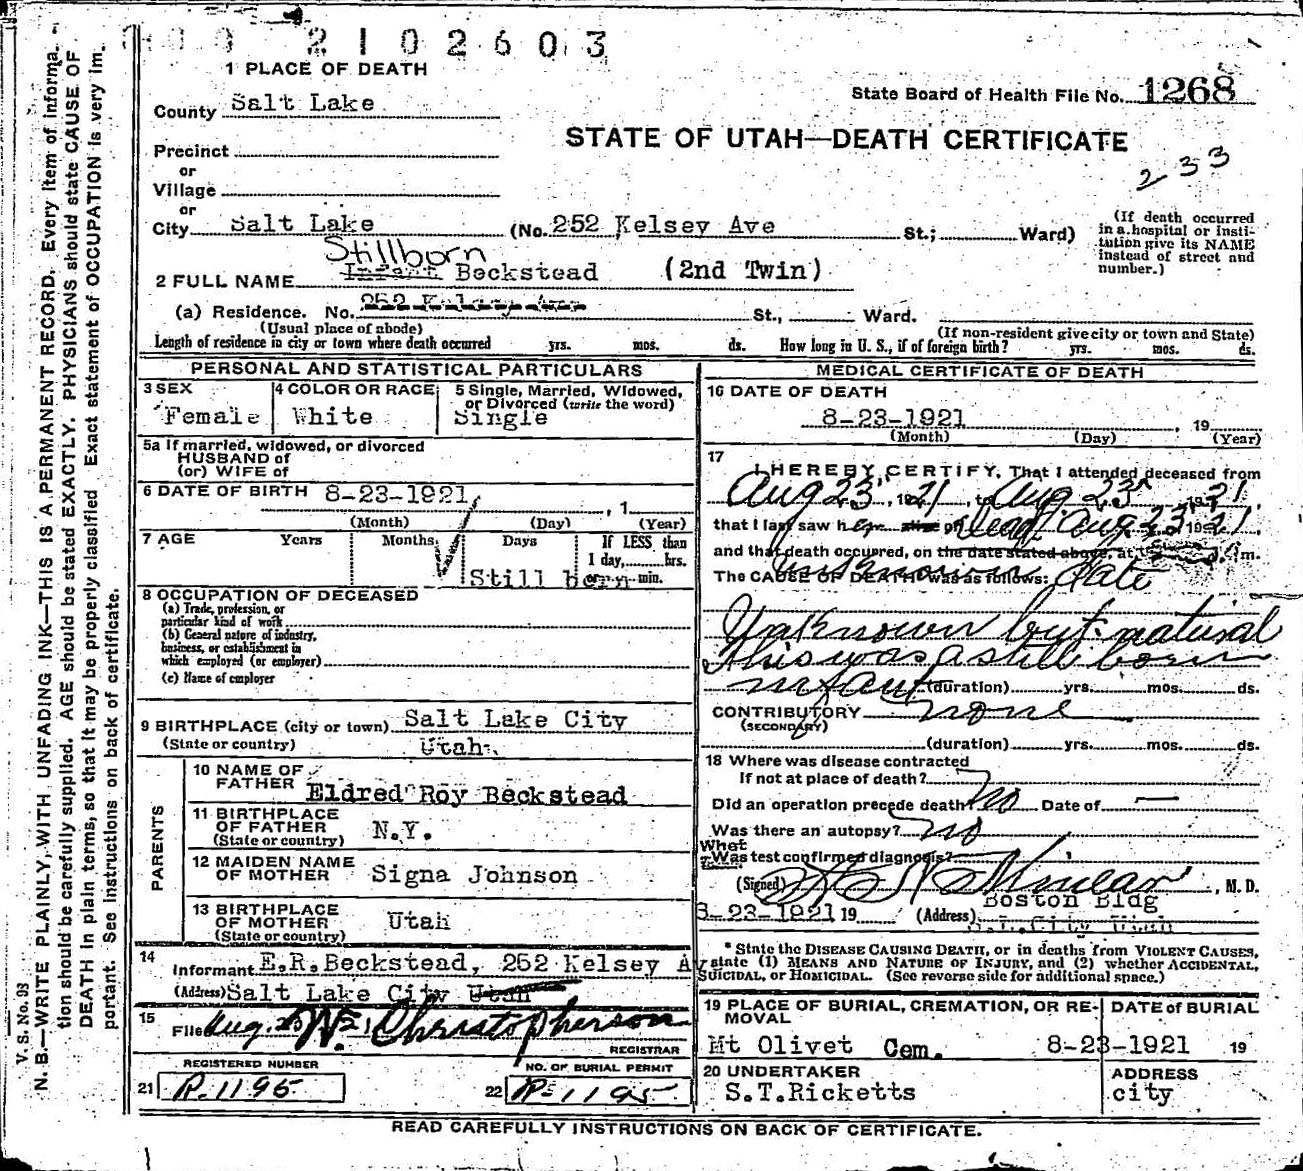 2102603
1 PLACE OF DEATH
County Salt Lake
State Board of Health File No. 1268
STATE OF UTAH—DEATH CERTIFICATE
233
Precinct
or
Village
or
City Salt Lake (No. 252 Kelsey Ave St.; Ward)
(If death occurred in a hospital or institution give its NAME instead of street and number.)
Stillborn
2 FULL NAME Infant Beckstead (2nd Twin)
(a) Residence. No. 252 Kelsey Ave St., Ward.
(Usual place of abode) (If non-resident give city or town and State)
Length of residence in city or town where death occurred yrs. mos. ds. How long in U. S., if of foreign birth? yrs. mos. ds.
PERSONAL AND STATISTICAL PARTICULARS
3 SEX Female
4 COLOR OR RACE White
5 Single, Married, Widowed, or Divorced (write the word) Single
5a If married, widowed, or divorced
HUSBAND of
(or) WIFE of
6 DATE OF BIRTH 8-23-1921, 1
(Month) (Day) (Year)
7 AGE Years Months Days If LESS than
1 day, hrs.
Still born or min.
8 OCCUPATION OF DECEASED
(a) Trade, profession, or
particular kind of work
(b) General nature of industry,
business, or establishment in
which employed (or employer)
(c) Name of employer
9 BIRTHPLACE (city or town) Salt Lake City
(State or country) Utah.
PARENTS
10 NAME OF
FATHER Eldred Roy Beckstead
11 BIRTHPLACE
OF FATHER N.Y.
(State or country)
12 MAIDEN NAME
OF MOTHER Signa Johnson
13 BIRTHPLACE
OF MOTHER Utah
(State or country)
14
Informant E.R.Beckstead, 252 Kelsey Av
(Address) Salt Lake City Utah
15
Filed Aug. 23 W. Christopherson
REGISTRAR
REGISTERED NUMBER NO. OF BURIAL PERMIT
21 R.1195 22 R-1195
MEDICAL CERTIFICATE OF DEATH
16 DATE OF DEATH
8-23-1921, 19
(Month) (Day) (Year)
17
I HEREBY CERTIFY, That I attended deceased from
Aug 23, 1921, to Aug 23, 1921
that I last saw her alive on dead Aug 23, 1921
and that death occurred, on the date stated above, at m.
unknown date
The CAUSE OF DEATH was as follows:
Unknown but natural
This was a still born
infant (duration) yrs. mos. ds.
CONTRIBUTORY none
(SECONDARY)
(duration) yrs. mos. ds.
18 Where was disease contracted
If not at place of death?
Did an operation precede death? no Date of —
Was there an autopsy? no
What
Was test confirmed diagnosis?
(Signed) , M. D.
8-23-1921 19 (Address) Boston Bldg
S.L.City Utah
* State the DISEASE CAUSING DEATH, or in deaths from VIOLENT CAUSES,
state (1) MEANS AND NATURE OF INJURY, and (2) whether ACCIDENTAL,
SUICIDAL, or HOMICIDAL. (See reverse side for additional space.)
19 PLACE OF BURIAL, CREMATION, OR RE-
MOVAL
Mt Olivet Cem.
DATE of BURIAL
8-23-1921 19
20 UNDERTAKER
S.T.Ricketts
ADDRESS
city
READ CAREFULLY INSTRUCTIONS ON BACK OF CERTIFICATE.
V. S. No. 93
N. B.—WRITE PLAINLY, WITH UNFADING INK—THIS IS A PERMANENT RECORD. Every item of informa-
tion should be carefully supplied. AGE should be stated EXACTLY. PHYSICIANS should state CAUSE OF
DEATH in plain terms, so that it may be properly classified. Exact statement of OCCUPATION is very im-
portant. See instructions on back of certificate.